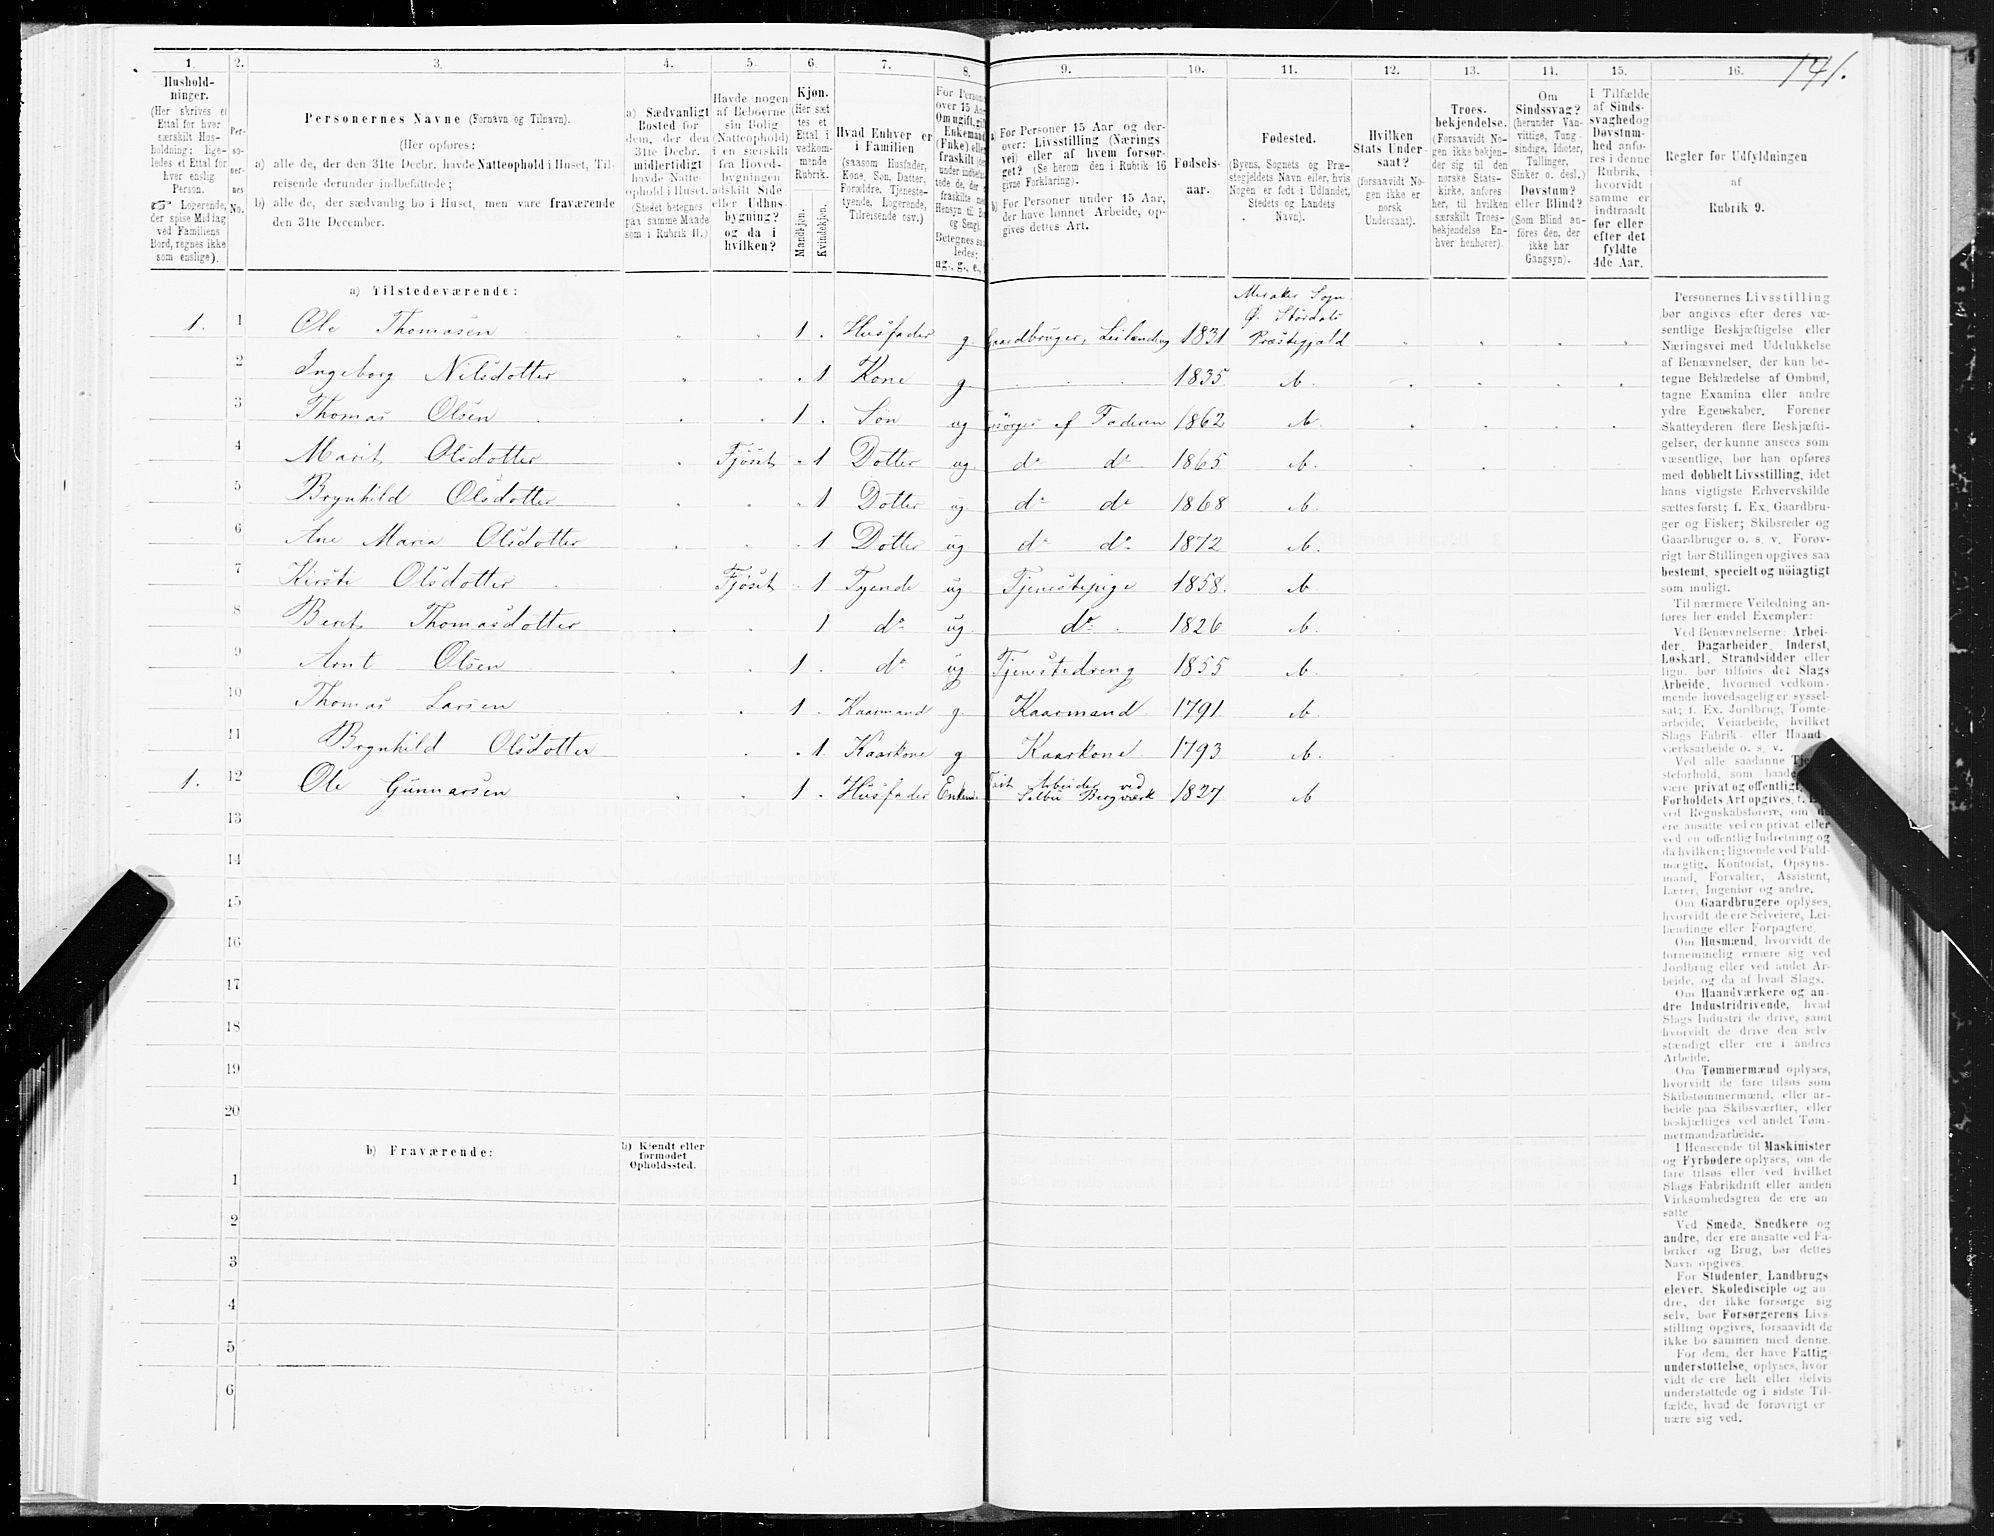 141.
1.
Hushold-
ninger.
(Her skrives et
Ettal for hver
særskilt Hus-
holdning; lige-
ledes et Ettal for
hver enslig
Person.
☞ Logerende,
der spise Middag
ved Familiens
Bord, regnes ikke
som enslige).
2.
Per-
so-
ner-
nes
No.
3.
Personernes Navne (Fornavn og Tilnavn).
(Her opføres:
a) alle de, der den 31te Decbr. havde Natteophold i Huset, Til-
reisende derunder indbefattede;
b) alle de, der sædvanlig bo i Huset, men vare fraværende
den 31te December.
4.
a) Sædvanligt
Bosted for
dem, der den
31te Decbr.
midlertidigt
havde Natte-
ophold i Huset.
(Stedet betegnes
paa samme Maade
som i Rubrik 11.)
5.
Havde nogen
af Beboerne
sin Bolig
(Natteophold)
i en særskilt
fra Hoved-
bygningen
adskilt Side
eller Udhus-
bygning?
og da i
hvilken?
6.
Kjøn.
(Her sæt
tes et
Ettal i
vedkom-
mende
Rubrik.
Mandkjøn.
Kvindekjøn.
7.
Hvad Enhver er
i Familien
(saasom Husfader,
Kone, Søn, Datter,
Forældre, Tjeneste-
tyende, Logerende,
Tilreisende osv.)
8.
For Persone
over 15 Aar
Om ugift, gift
Enkemand
(Enke) eller
fraskilt
Betegnes saa-
ledes:
ug., g., e.,
9.
a) For Personer 15 Aar og der-
over: Livsstilling (Nærings
vei) eller af hvem forsør-
get? (Se herom den i Rubrik 16
givne Forklaring).
b) For Personer under 15 Aar,
der have lønnet Arbeide, op-
gives dettes Art.
10.
Fødsels-
aar.
11.
Fødested.
(Byens, Sognets og Præ-
stegjeldets Navn eller, hvis
Nogen er født i Udlandet,
Stedets og Landets
Navn).
12.
Hvilken
Stats Under-
saat?
(forsaavidt No-
gen ikke er
norsk
Undersaat).
13.
Troes-
bekjendelse.
(Forsaavidt No-
gen ikke bekjen-
der sig til den
norske Stats-
kirke, anføres
her, til hvilken
særskilt Troes-
bekjendelse En-
hver henhører).
14.
Om
Sindssvag?
(herunder Van-
vittige, Tung-
sindige, Idioter,
Tullinger,
Sinker o. desl.)
Døvstum?
eller Blind?
(Som Blind an-
føres den, der
ikke har
Gangsyn).
15.
I Tilfælde
af Sinds-
svaghed og
Døvstum-
hed anfø-
res i denne
Rubrik,
hvorvidt
samme er
indtraadt
før eller
efter det
fyldte
4de Aar.
16.
Regler for Udfyldningen
af
Rubrik 9.
a) Tilstedeværende:
1. 1 Ole Thomasen 1 Husfader g. Gaardbruger, Leilending 1831 Meraker Sogn
Ø. Stördals
Præstegjæld
2 Ingeborg Nilsdotter 1 Kone g. 1835 M.
3 Thomas Olsen 1 Søn ug Forsörges af Faderen 1862 M.
4 Marit Olsdotter Fjöset 1 Dotter ug. do do 1865 M.
5 Brynhild Olsdotter 1 Dotter ug. do do 1868 M.
6 Ane Maria Olsdotter 1 Dotter ug. do do 1872 M.
7 Kirsti Olsdotter Fjöset 1 Tyende ug. Tjenestepige 1858. M.
8 Berit Thomasdotter 1 do ug. do 1826 M.
9 Arnt Olsen 1 do ug Tjenestedreng 1855 M.
10 Thomas Larsen 1 Kaarmand g. Kaarmand 1791. M.
11 Brynhild Olsdotter 1 Kaarkone g Kaarkone 1793 M.
1. 12 Ole Gunnarsen 1 Husfader Enkem. Fast Arbeider ved
Selbu Bergværk 1827 M
13
14
15
16
17
18
19
20
b) Fraværende:
b) Kjendt eller
formodet
Opholdssted.
1
2
3
4
5
6
Personernes Livsstilling
bør angives efter deres væ-
sentlige Beskjæftigelse eller
Næringsvei med Udelukkelse
af Benævnelser, der kun be-
tegne Beklædelse af Ombud,
tagne Examina eller andre
ydre Egenskaber. Forener
Skatteyderen flere Beskjæfti-
gelser, der kunne ansees som
væsentlige, bør han opføres
med dobbelt Livsstilling, idet
hans vigtigste Erhvervskilde
sættes først; f. Ex. Gaardbru-
ger og Fisker; Skibsreder og
Gaardbruger o. s. v. Forøv-
rigt bør Stillingen opgives saa
bestemt, specielt og nøiagtigt
som muligt.
Til nærmere Veiledning an-
føres her endel Exempler:
Ved Benævnelserne: Arbei-
der, Dagarbeider, Inderst,
Løskarl, Strandsidder eller
lign. bør tilføies det Slags
Arbeide, hvormed vedkom-
mende hovedsagelig er syssel-
sat; f. Ex. Jordbrug, Tomte-
arbeide, Veiarbeide, hvilket
Slags Fabrik- eller Haand
værksarbeide o. s. v.
Ved alle saadanne Tje
steforhold, som baade
være privat og offentligt,
Forholdets Art opgives, t. Ex.
ved Regnskabsførere, om de
ere ansatte ved en privat eller
ved en offentlig Indretning og
da hvilken; lignende ved Fuld-
mægtig, Kontorist, Opsyns-
mand, Forvalter, Assistent,
Lærer, Ingeniør og andre.
Om Gaardbrugere oplyses,
hvorvidt de ere Selveiere, Lei-
lændinge eller Forpagtere.
Om Husmænd, hvorvidt de
fornemmelig ernære sig ved
Jordbrug eller ved andet Ar-
beide, og da af hvad Slags.
Om Haandværkere og an-
dre Industridrivende, hvad
Slags Industri de drive, samt
hvorvidt de drive den selv-
stændigt eller ere i andres
Arbeide.
Om Tømmermænd oplyses,
hvorvidt de fare tilsøs som
Skibstømmermænd, eller ar-
beide paa Skibsværfter, eller
beskjæftiges ved andet Tøm-
mermandsarbeide.
I Henseende til Maskinister
og Fyrbødere oplyses, om de
fare tilsøs eller ved hvilket
Slags Fabrikdrift eller anden
Virksomhedsgren de ere an-
satte.
Ved Smede, Snedkere og
andre, der ere ansatte ved Fa-
briker og Brug, bør dettes
Navn opgives.
For Studenter, Landbrugs
elever, Skoledisciple og an-
dre, der ikke forsørge sig
selv, bør Forsørgerens Livs-
stilling opgives, forsaavidt de
ikke bo sammen med denne.
For dem, der have Fattig-
understøttelse, oplyses, hvor
vidt de ere helt eller delvis
understøttede og i sidste Til-
fælde, hvad de forøvrigt er
nære sig ved.